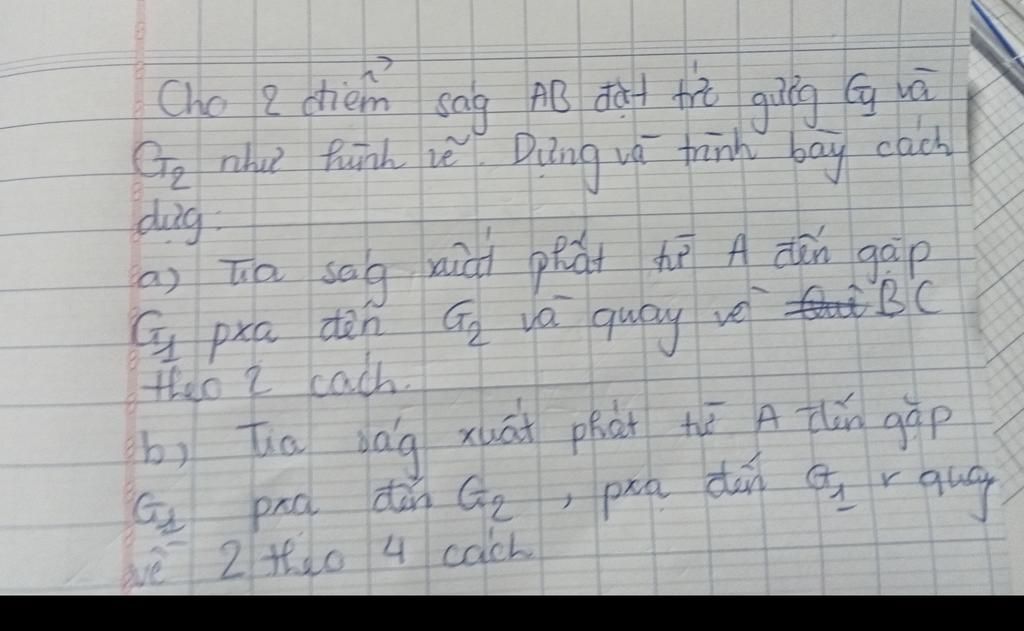 Cho 2 điểm sag AB đặt trc gương G1 và
G2 như hình vẽ. Dựng và trình bày cách
dựg.
a) Tia sag xuất phát từ A đến gặp
G1 pxa đến G2 và quay về B C
theo 2 cách.
b) Tia ság xuất phát từ A đến gặp
G1 pxa đến G2, pxa đến G1 r quay
về 2 theo 4 cách